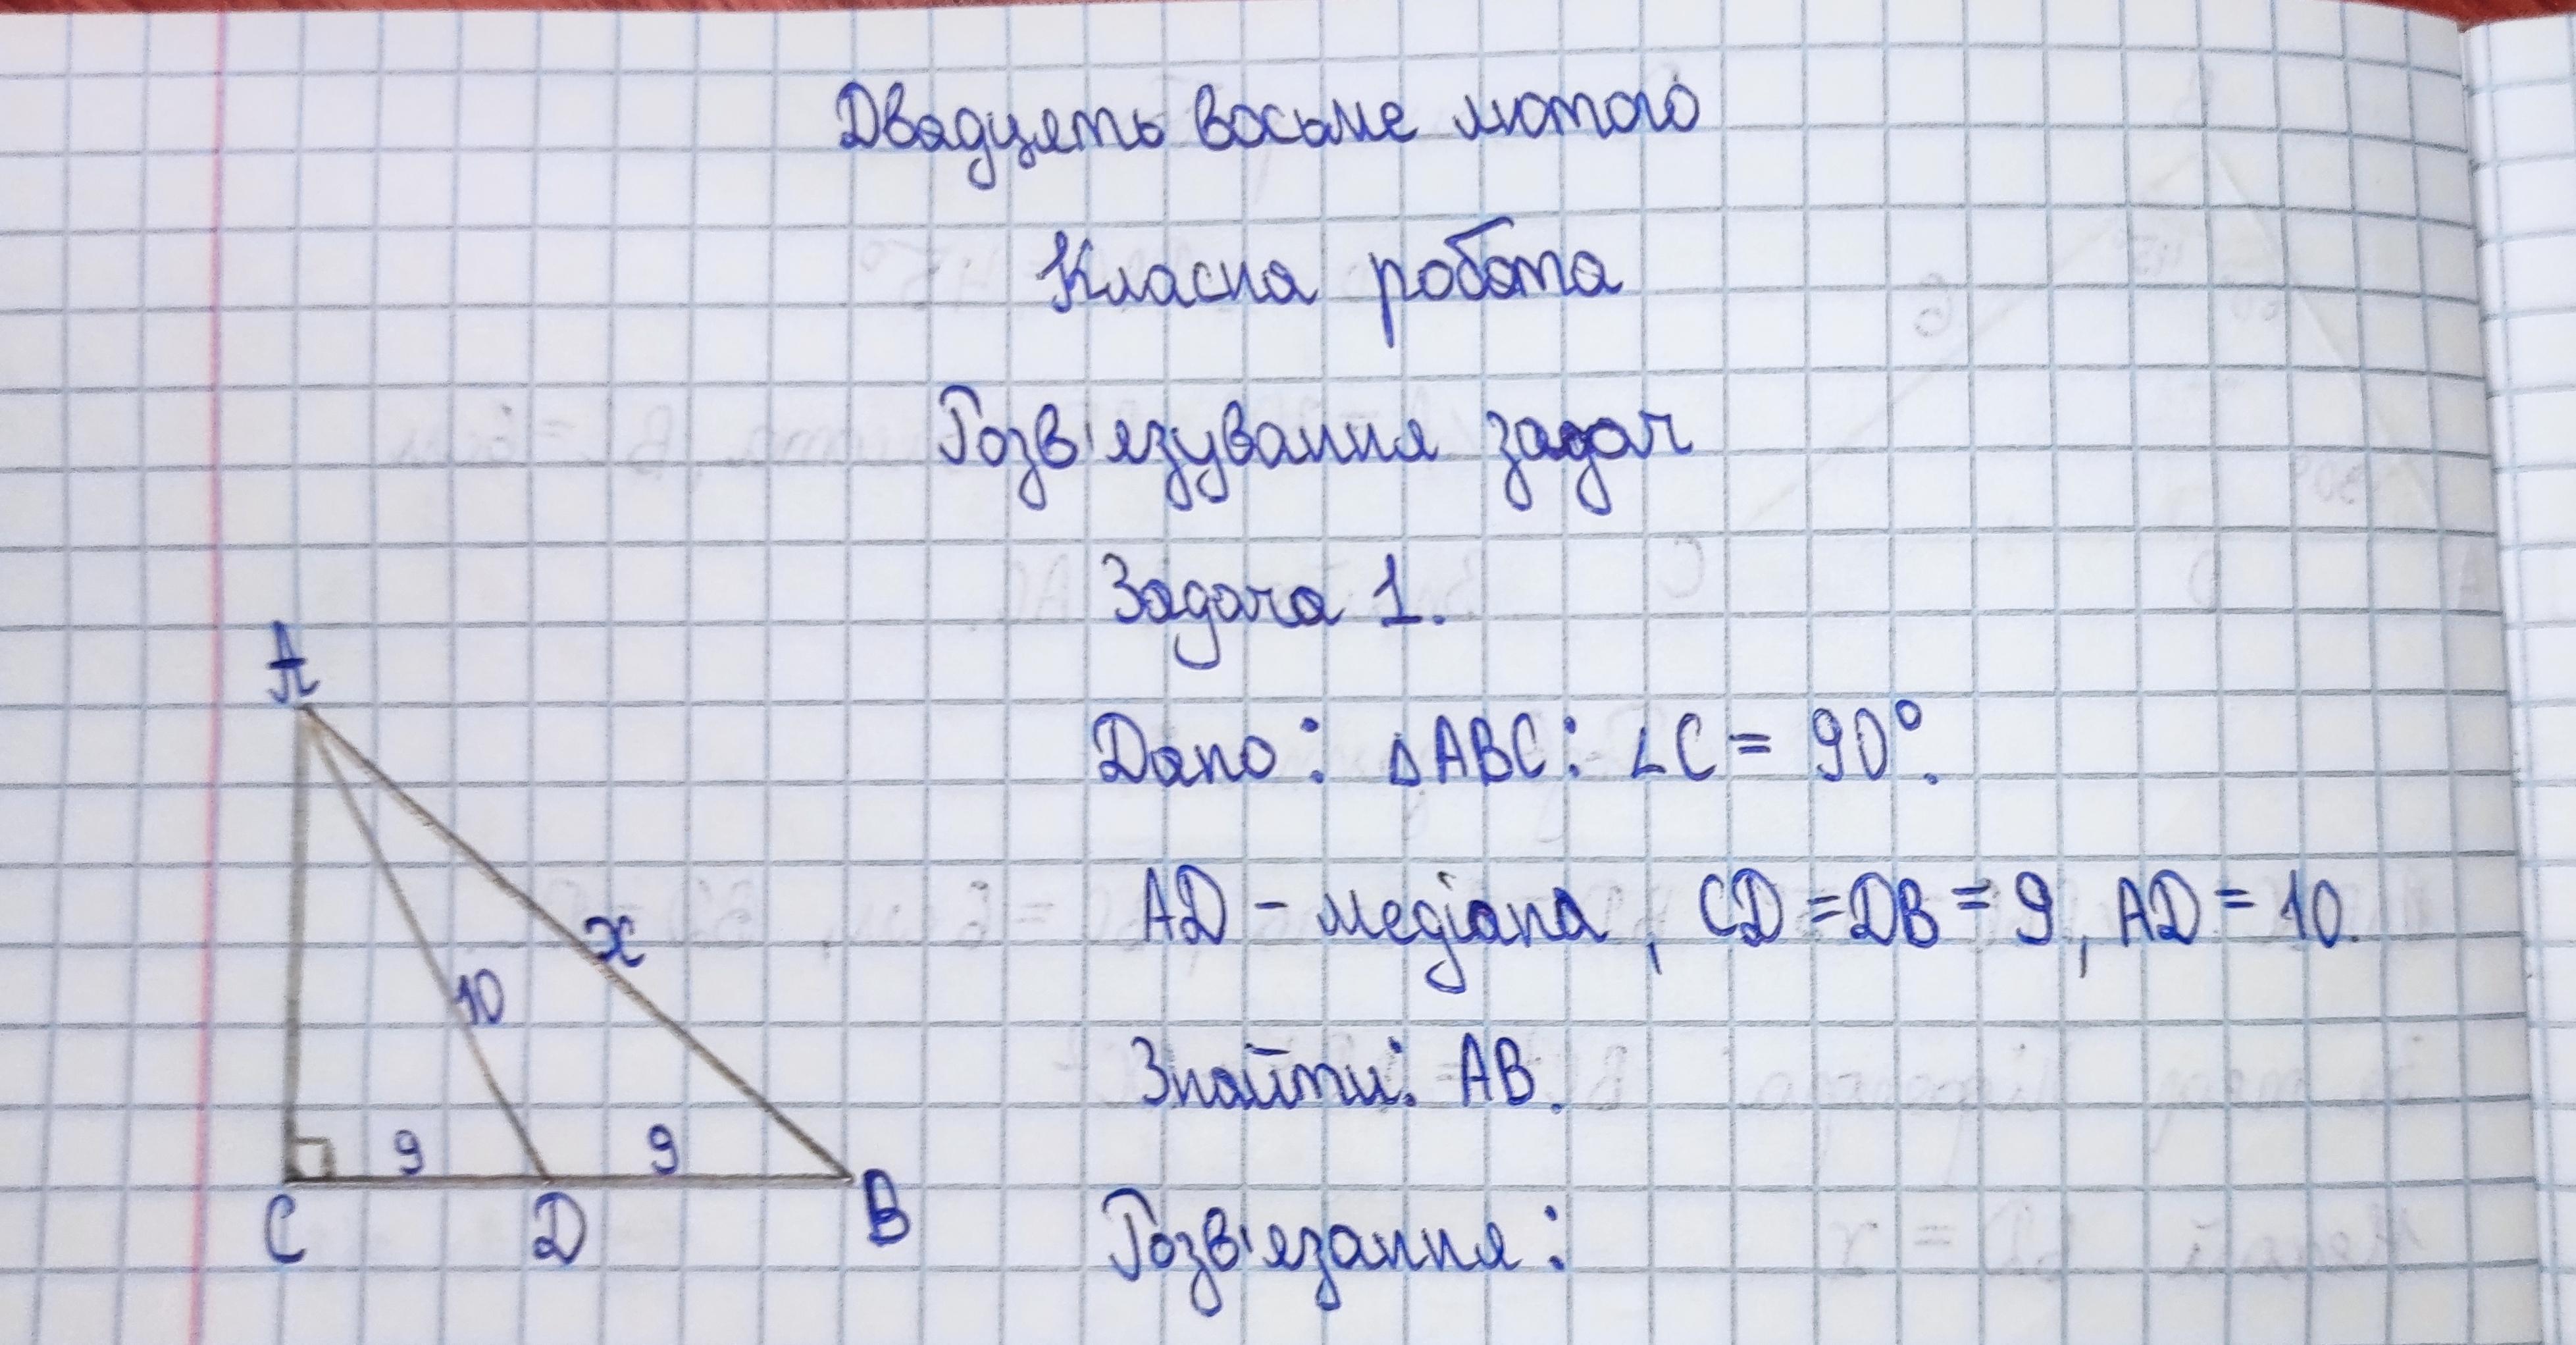 Двадцять восьме лютого
Класна робота
Розв'язування задач
Задача 1.
Дано: △ABC: ∠C = 90°.
AD - медіана, CD = DB = 9, AD = 10.
Знайти: AB.
Розв'язання:
A
x
10
9
9
C
D
B